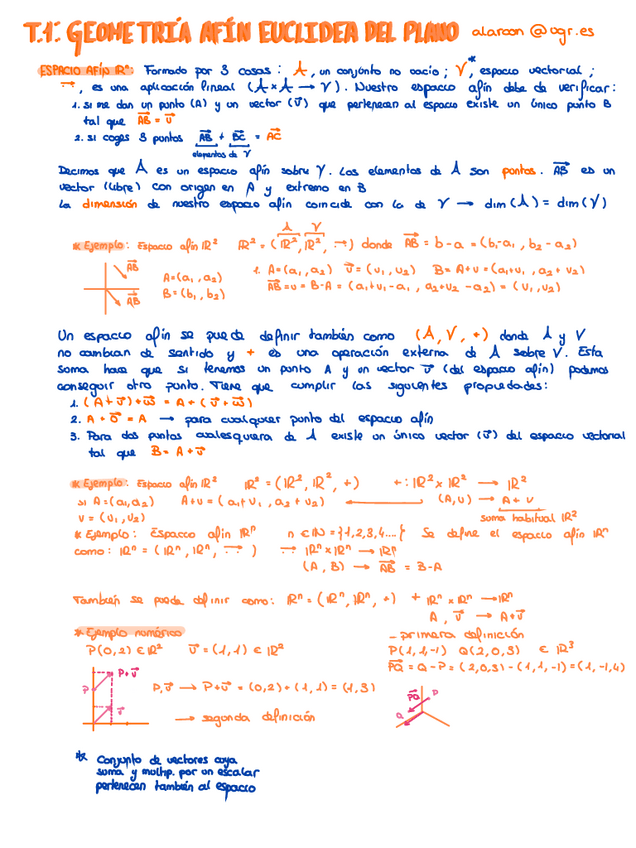 T.1: GEOMETRÍA AFÍN EUCLIDEA DEL PLANO alarcon@ugr.es
ESPACIO AFÍN ℝⁿ: Formado por 3 cosas: A, un conjunto no vacío; V*, espacio vectorial;
→, es una aplicación lineal (A×A → V). Nuestro espacio afín debe de verificar:
1. si me dan un punto (A) y un vector (v⃗) que pertenecen al espacio existe un único punto B
tal que AB⃗ = v⃗
2. si coges 3 puntos AB⃗ + BC⃗ = AC⃗
elementos de V
Decimos que A es un espacio afín sobre V. Los elementos de A son puntos. AB⃗ es un
vector (libre) con origen en A y extremo en B
La dimensión de nuestro espacio afín coincide con la de V → dim(A) = dim(V)
A V
* Ejemplo: Espacio afín ℝ² ℝ² = (ℝ², ℝ², →) donde AB⃗ = b-a = (b₁-a₁, b₂-a₂)
AB⃗
AB⃗
A=(a₁, a₂)
B=(b₁, b₂)
1. A=(a₁, a₂) v⃗=(v₁, v₂) B=A+v=(a₁+v₁, a₂+v₂)
AB⃗=v=B-A = (a₁+v₁-a₁, a₂+v₂-a₂) = (v₁, v₂)
Un espacio afín se puede definir también como (A, V, +) donde A y V
no cambian de sentido y + es una operación externa de A sobre V. Esta
suma hace que si tenemos un punto A y un vector v⃗ (del espacio afín) podemos
conseguir otro punto. Tiene que cumplir las siguientes propiedades:
1. (A+v⃗)+w⃗ = A+(v⃗+w⃗)
2. A+0⃗ = A → para cualquier punto del espacio afín
3. Para dos puntos cualesquiera de A existe un único vector (v⃗) del espacio vectorial
tal que B = A+v⃗
* Ejemplo: Espacio afín ℝ² ℝ² = (ℝ², ℝ², +) +: ℝ² x ℝ² → ℝ²
si A=(a₁,a₂) A+v = (a₁+v₁, a₂+v₂) ← (A,v) → A+v
v=(v₁,v₂) suma habitual ℝ²
* Ejemplo: Espacio afín ℝⁿ n∈ℕ={1,2,3,4....} Se define el espacio afín ℝⁿ
como: ℝⁿ = (ℝⁿ, ℝⁿ, →) → ℝⁿ x ℝⁿ → ℝⁿ
(A, B) → AB⃗ = B-A
También se puede definir como: ℝⁿ = (ℝⁿ, ℝⁿ, +) + ℝⁿ x ℝⁿ → ℝⁿ
A, v⃗ → A+v⃗
* Ejemplo numérico
P(0,2) ∈ ℝ² v⃗=(1,1) ∈ ℝ²
P+v⃗
P
v⃗
P,v⃗ → P+v⃗ = (0,2)+(1,1) = (1,3)
→ segunda definición
- primera definición
P(1,1,-1) Q(2,0,3) ∈ ℝ³
PQ⃗ = Q-P = (2,0,3)-(1,1,-1)=(1,-1,4)
PQ⃗
P
Q
* Conjunto de vectores cuya
suma y multip. por un escalar
pertenecen también al espacio